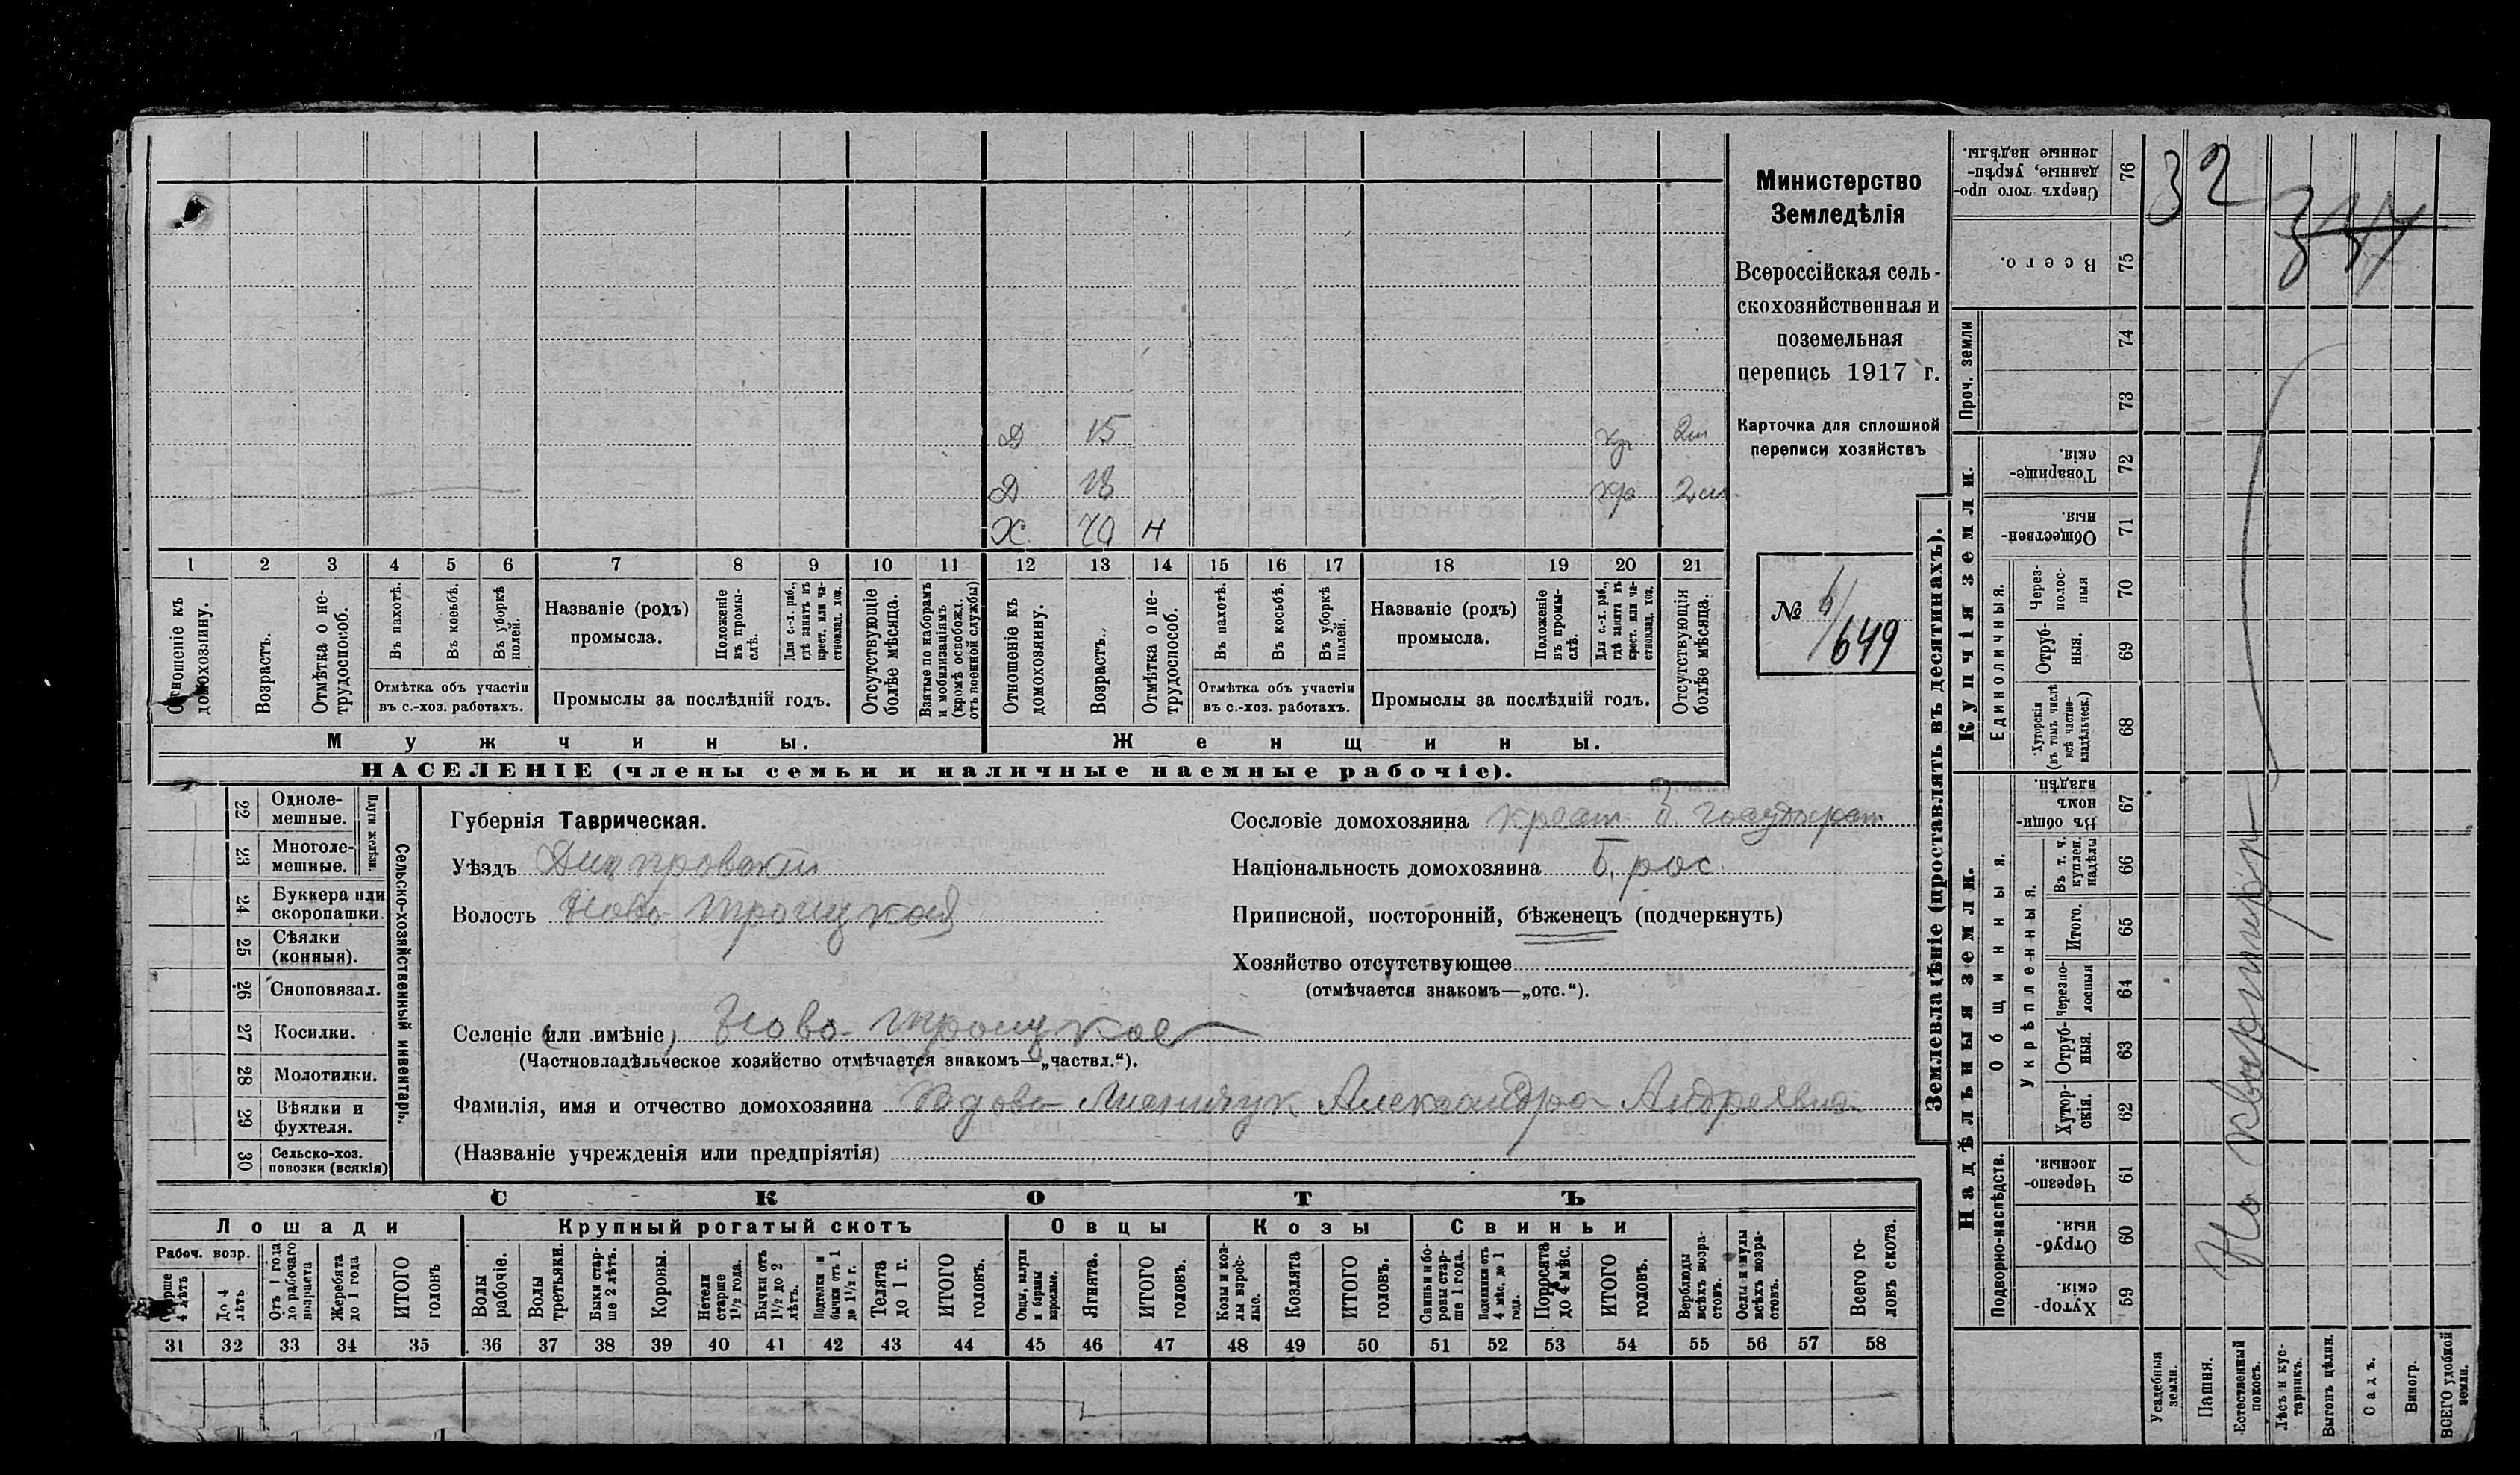 Д 15 кр 2 м
Д 18 кр 2 м
Х 70 Н
1 2 3 4 5 6 7 8 9 10 11 12 13 14 15 16 17 18 19 20 21
Отношеніе къ домохозяину.
Возрастъ.
Отмѣтка о нетрудоспособ.
Въ пахотѣ.
Въ косьбѣ.
Въ уборкѣ полей.
Отмѣтка объ участіи въ с.-хоз. работахъ.
Названіе (родъ) промысла.
Положеніе въ промыслѣ.
Для с.-х. раб., гдѣ занятъ въ крест. или частновлад. хоз.
Промыслы за послѣдній годъ.
Отсутствующіе болѣе мѣсяца.
Взятые по наборамъ и мобилизаціямъ (кромѣ освобожд. отъ военной службы)
Отношеніе къ домохозяину.
Возрастъ.
Отмѣтка о нетрудоспособ.
Въ пахотѣ.
Въ косьбѣ.
Въ уборкѣ полей.
Отмѣтка объ участіи въ с.-хоз. работахъ.
Названіе (родъ) промысла.
Положеніе въ промыслѣ.
Для с.-х. раб., гдѣ занята въ крест. или частновлад. хоз.
Промыслы за послѣдній годъ.
Отсутствующія болѣе мѣсяца.
Мужчины.
Женщины.
НАСЕЛЕНІЕ (члены семьи и наличные наемные рабочіе).
Министерство
Земледѣлія
Всероссійская сель-
скохозяйственная и
поземельная
перепись 1917 г.
Карточка для сплошной
переписи хозяйствъ
№
649
Сельско-хозяйственный инвентарь.
Плуги желѣзн.
22 Однолемешные.
23 Многолемешные.
24 Буккера или скоропашки.
25 Сѣялки (конныя).
26 Сноповязал.
27 Косилки.
28 Молотилки.
29 Вѣялки и фухтеля.
30 Сельско-хоз. повозки (всякія)
Губернія Таврическая.
Уѣздъ Днепровскій
Волость Ново Троицкая
Селеніе (или имѣніе) Ново-Троицкое
(Частновладѣльческое хозяйство отмѣчается знакомъ—„частвл.“).
Фамилія, имя и отчество домохозяина Вдова Александра Андреевна
(Названіе учрежденія или предпріятія)
Сословіе домохозяина крест. б. государст
Національность домохозяина Б. рос.
Приписной, посторонній, бѣженецъ (подчеркнуть)
Хозяйство отсутствующее
(отмѣчается знакомъ—„отс.“).
СКОТЪ
Лошади
Крупный рогатый скотъ
Овцы
Козы
Свиньи
Рабоч. возр.
Старше 4 лѣтъ
До 4 лѣтъ
Отъ 1 года до рабочаго возраста
Жеребята до 1 года
ИТОГО головъ
Волы рабочіе.
Волы третьяки.
Быки старше 2 лѣтъ.
Коровы.
Нетели старше 1½ года.
Бычки отъ 1½ до 2 лѣтъ.
Подтелки и бычки отъ 1 до 1½ г.
Телята до 1 г.
ИТОГО головъ.
Овцы, валухи и бараны взрослые.
Ягнята.
ИТОГО головъ.
Козы и козлы взрослые.
Козлята
ИТОГО головъ.
Свиньи и боровы старше 1 года.
Подсвинки отъ 4 мѣс. до 1 года.
Поросята до 4 мѣс.
ИТОГО головъ.
Верблюды всѣхъ возрастовъ.
Ослы и мулы всѣхъ возрастовъ.
Всего головъ скота.
31 32 33 34 35 36 37 38 39 40 41 42 43 44 45 46 47 48 49 50 51 52 53 54 55 56 57 58
Землевладѣніе (проставлять въ десятинахъ).
Купчія земли.
Надѣльныя земли.
Сверхъ того проданные, укрѣпленные надѣлы. 76
Всего. 75
Проч. земли
74
73
Товарищескія. 72
Общественныя. 71
Единоличныя.
Черезполосныя 70
Отрубныя. 69
Хуторскія (въ томъ числѣ всѣ частновладѣльческ.) 68
Общинныя.
Въ общинномъ владѣн. 67
Укрѣпленныя.
Въ т. ч. куплен. надѣлы 66
Итого. 65
Черезполосныя 64
Отрубныя. 63
Хуторскія. 62
Подворно-наслѣдств.
Черезполосныя. 61
Отрубныя. 60
Хуторскія. 59
Усадебныя земли.
Пашня.
Естественный покосъ.
Лѣсъ и кустарникъ.
Выгонъ цѣлин.
Садъ.
Виногр.
ВСЕГО удобной земли.
32
На квартире